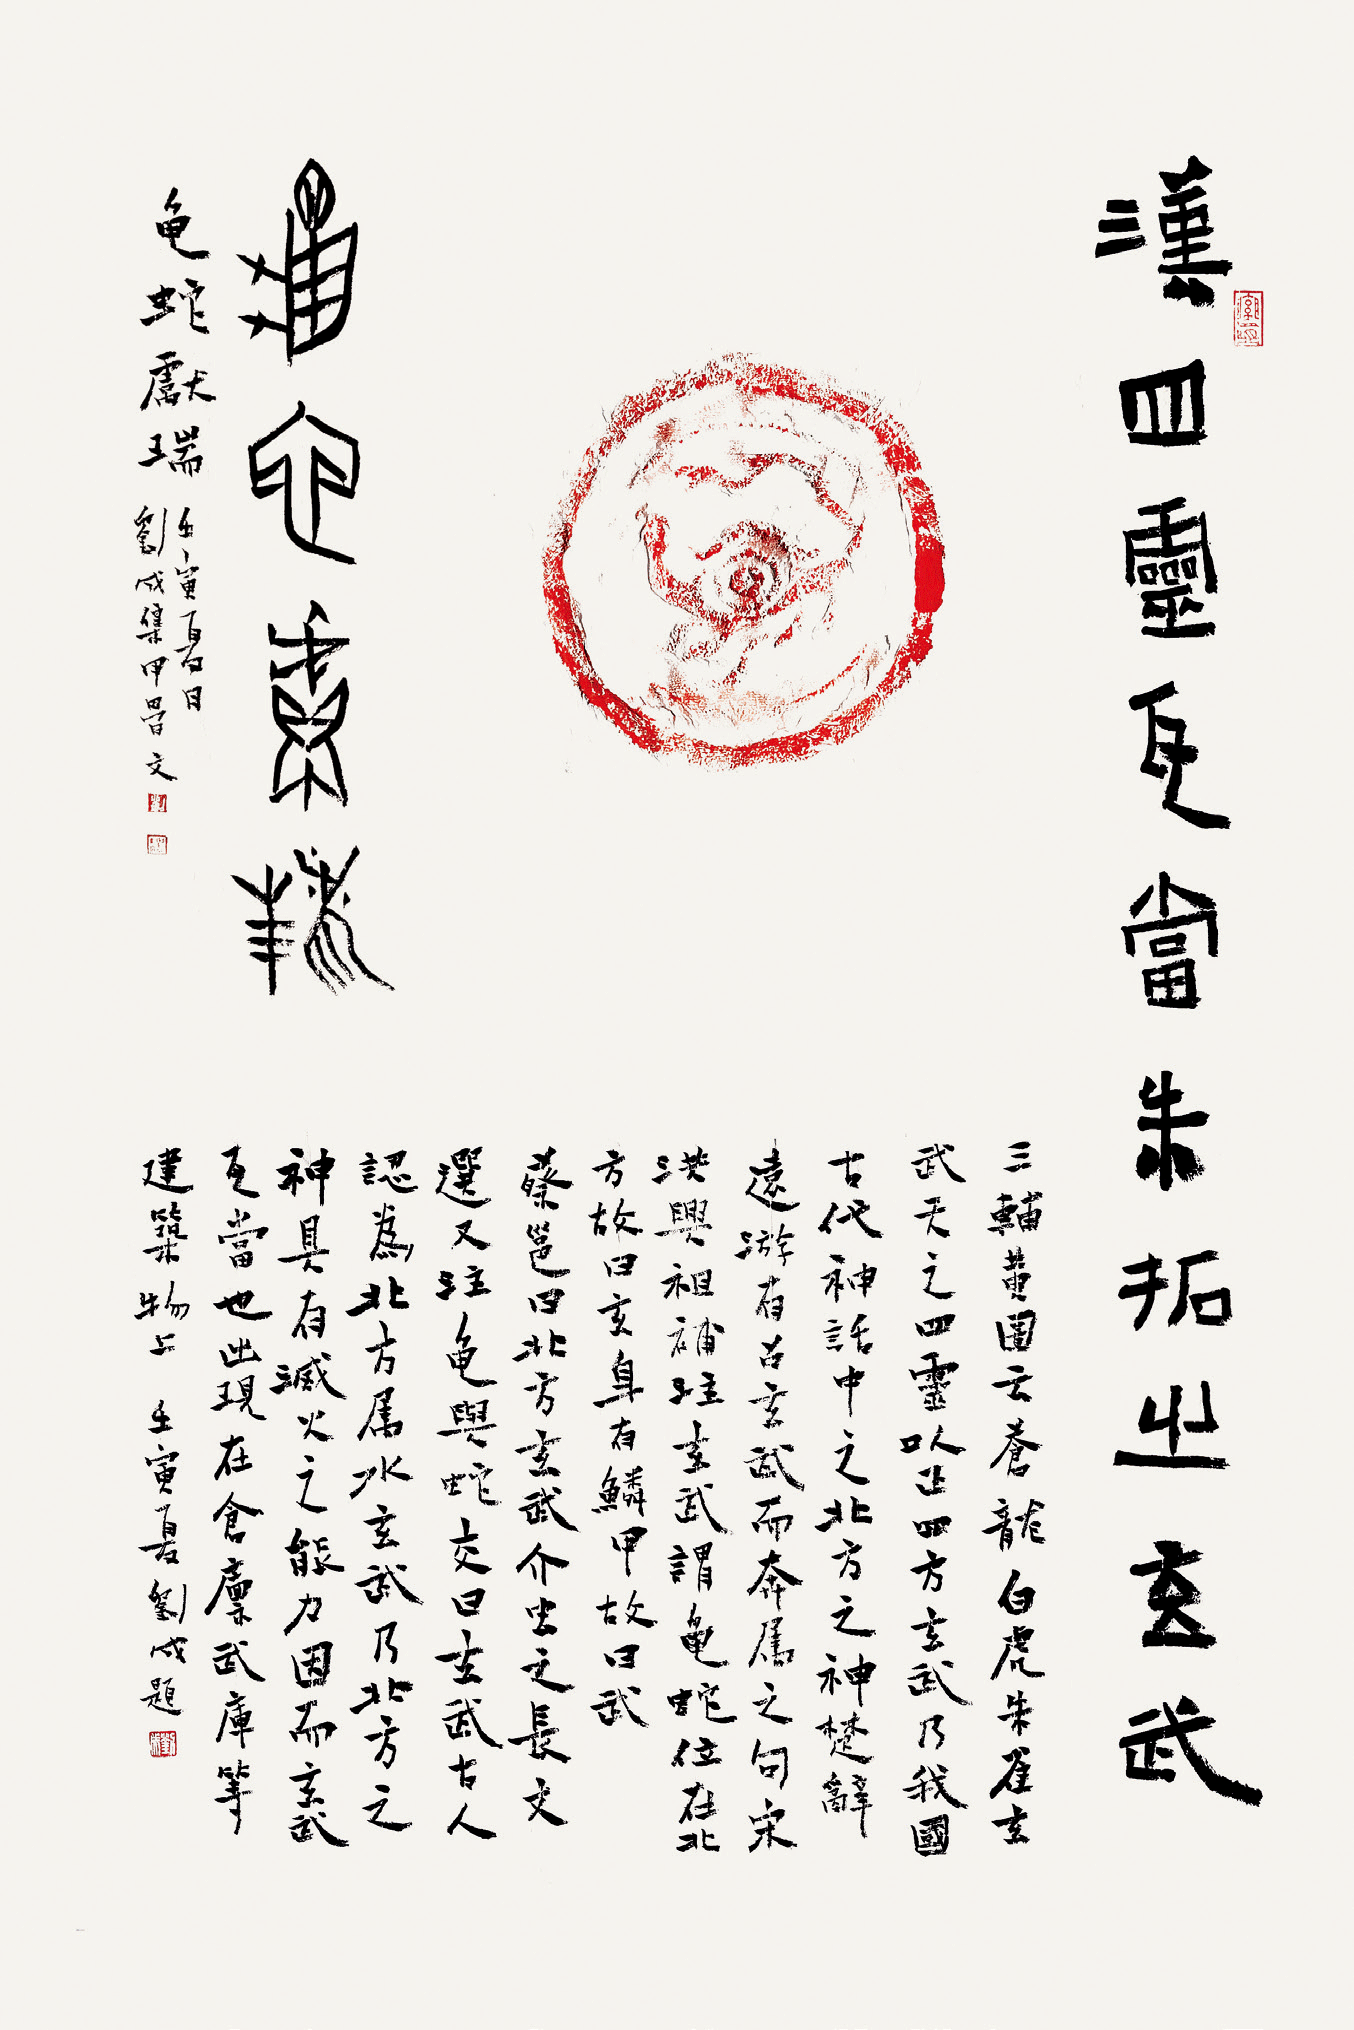 漢四靈瓦當朱拓之玄武
三輔黄圖云蒼龍白虎朱雀玄
武天之四靈以正四方玄武乃我國
古代神話中之北方之神楚辭
遠游有召玄武而奔属之句宋
洪興祖補注玄武謂龜蛇位在北
方故曰玄身有鱗甲故曰武
蔡邕曰北方玄武介虫之長文
選又注龜與蛇交曰玄武古人
認為北方属水玄武乃北方之
神具有滅火之能力因而玄武
瓦當也出現在倉廩武庫等
建築物上 壬寅夏劉成題
龜蛇獻瑞
龜蛇獻瑞
壬寅夏日
劉成集甲骨文